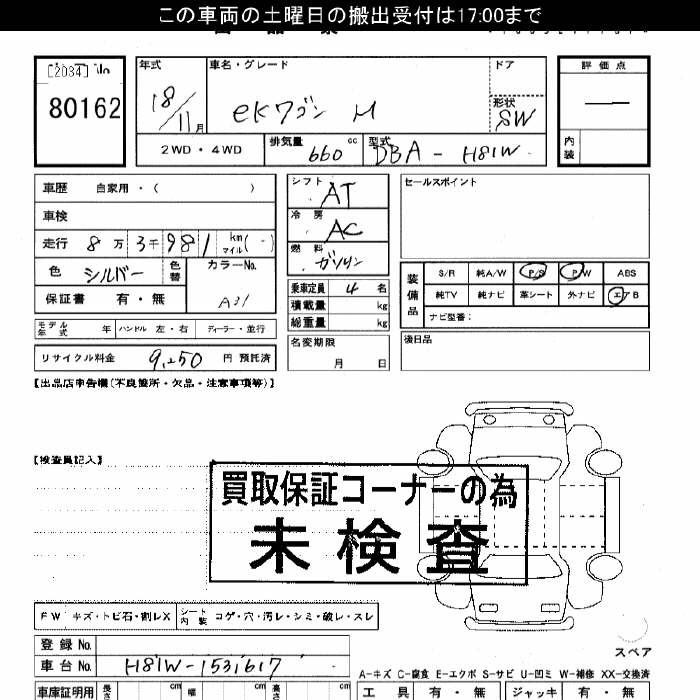 この車両の土曜日の搬出受付は17:00まで
[2034] No
80162
年式 車名・グレード ドア 評価点
18/11月 eKワゴン M 形状 SW
2WD・4WD 排気量 660 cc 型式 DBA - H81W 内装
車歴 自家用・( )
車検
走行 8万3千981 km マイル(-)
色 シルバー 色替 カラーNo. A31
保証書 有・無
モデル年式 年 ハンドル 左・右 ディーラー・並行
リサイクル料金 9,250 円 預託済
シフト AT
冷房 AC
燃料 ガソリン
乗車定員 4 名
積載量 kg
総重量 kg
名変期限 月 日
セールスポイント
装備品 S/R 純A/W P/S P/W ABS
純TV 純ナビ 革シート 外ナビ エアB
ナビ型番:
後日品
【出品店申告欄(不良箇所・欠品・注意事項等)】
【検査員記入】
買取保証コーナーの為
未検査
FW キズ・トビ石・割レX シート内装 コゲ・穴・汚レ・シミ・破レ・スレ
登録No.
車台No. H81W-1531617
スペア
A-キズ C-腐食 E-エクボ S-サビ U-凹ミ W-補修 XX-交換済
車庫証明用 長さ cm 幅 cm 高さ cm 工具 有・無 ジャッキ 有・無